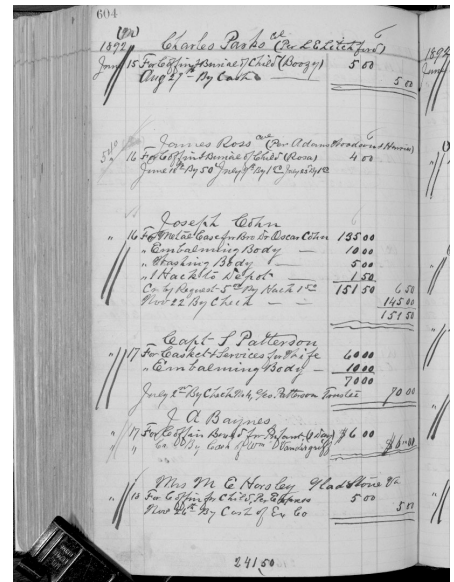 604
1892 Charles Parks col (Per L E Litchford)
June 15 For Coffin & Burial of Child (Boozy) 5 00
Aug 27th By Cash — 5 00
James Ross col (Per Adam and Harris)
" 16 For Coffin & Burial of Child (Rosa) 4 00
June 18th By 50 July 9th By 1 July 23rd By 1
Joseph Cohn
" 16 For Metal Case for Bro Dr Oscar Cohn 135 00
" Embalming Body — 10 00
" Washing Body — 5 00
" 1 Hack to Depot — 1 50
Cr by Request 5 By Hack 1 50 151 50 6 50
Nov 22 By Check — 145 00
151 50
Capt S Patterson
" 17 For Casket & Services for Wife 60 00
" Embalming Body — 10 00
70 00
July 2nd By Check Geo Patterson Trustee 70 00
J A Baynes
" 17 For Coffin Box for Infant (1 Day) $6 00
" Cr By Wm Vandegrift $6 00
Mrs M E Horsley Gladstone Va
" 18 For Coffin for Child, Per Express 5 00
Nov 26th By Cost of Ex Co 5 00
241 50
1892
June